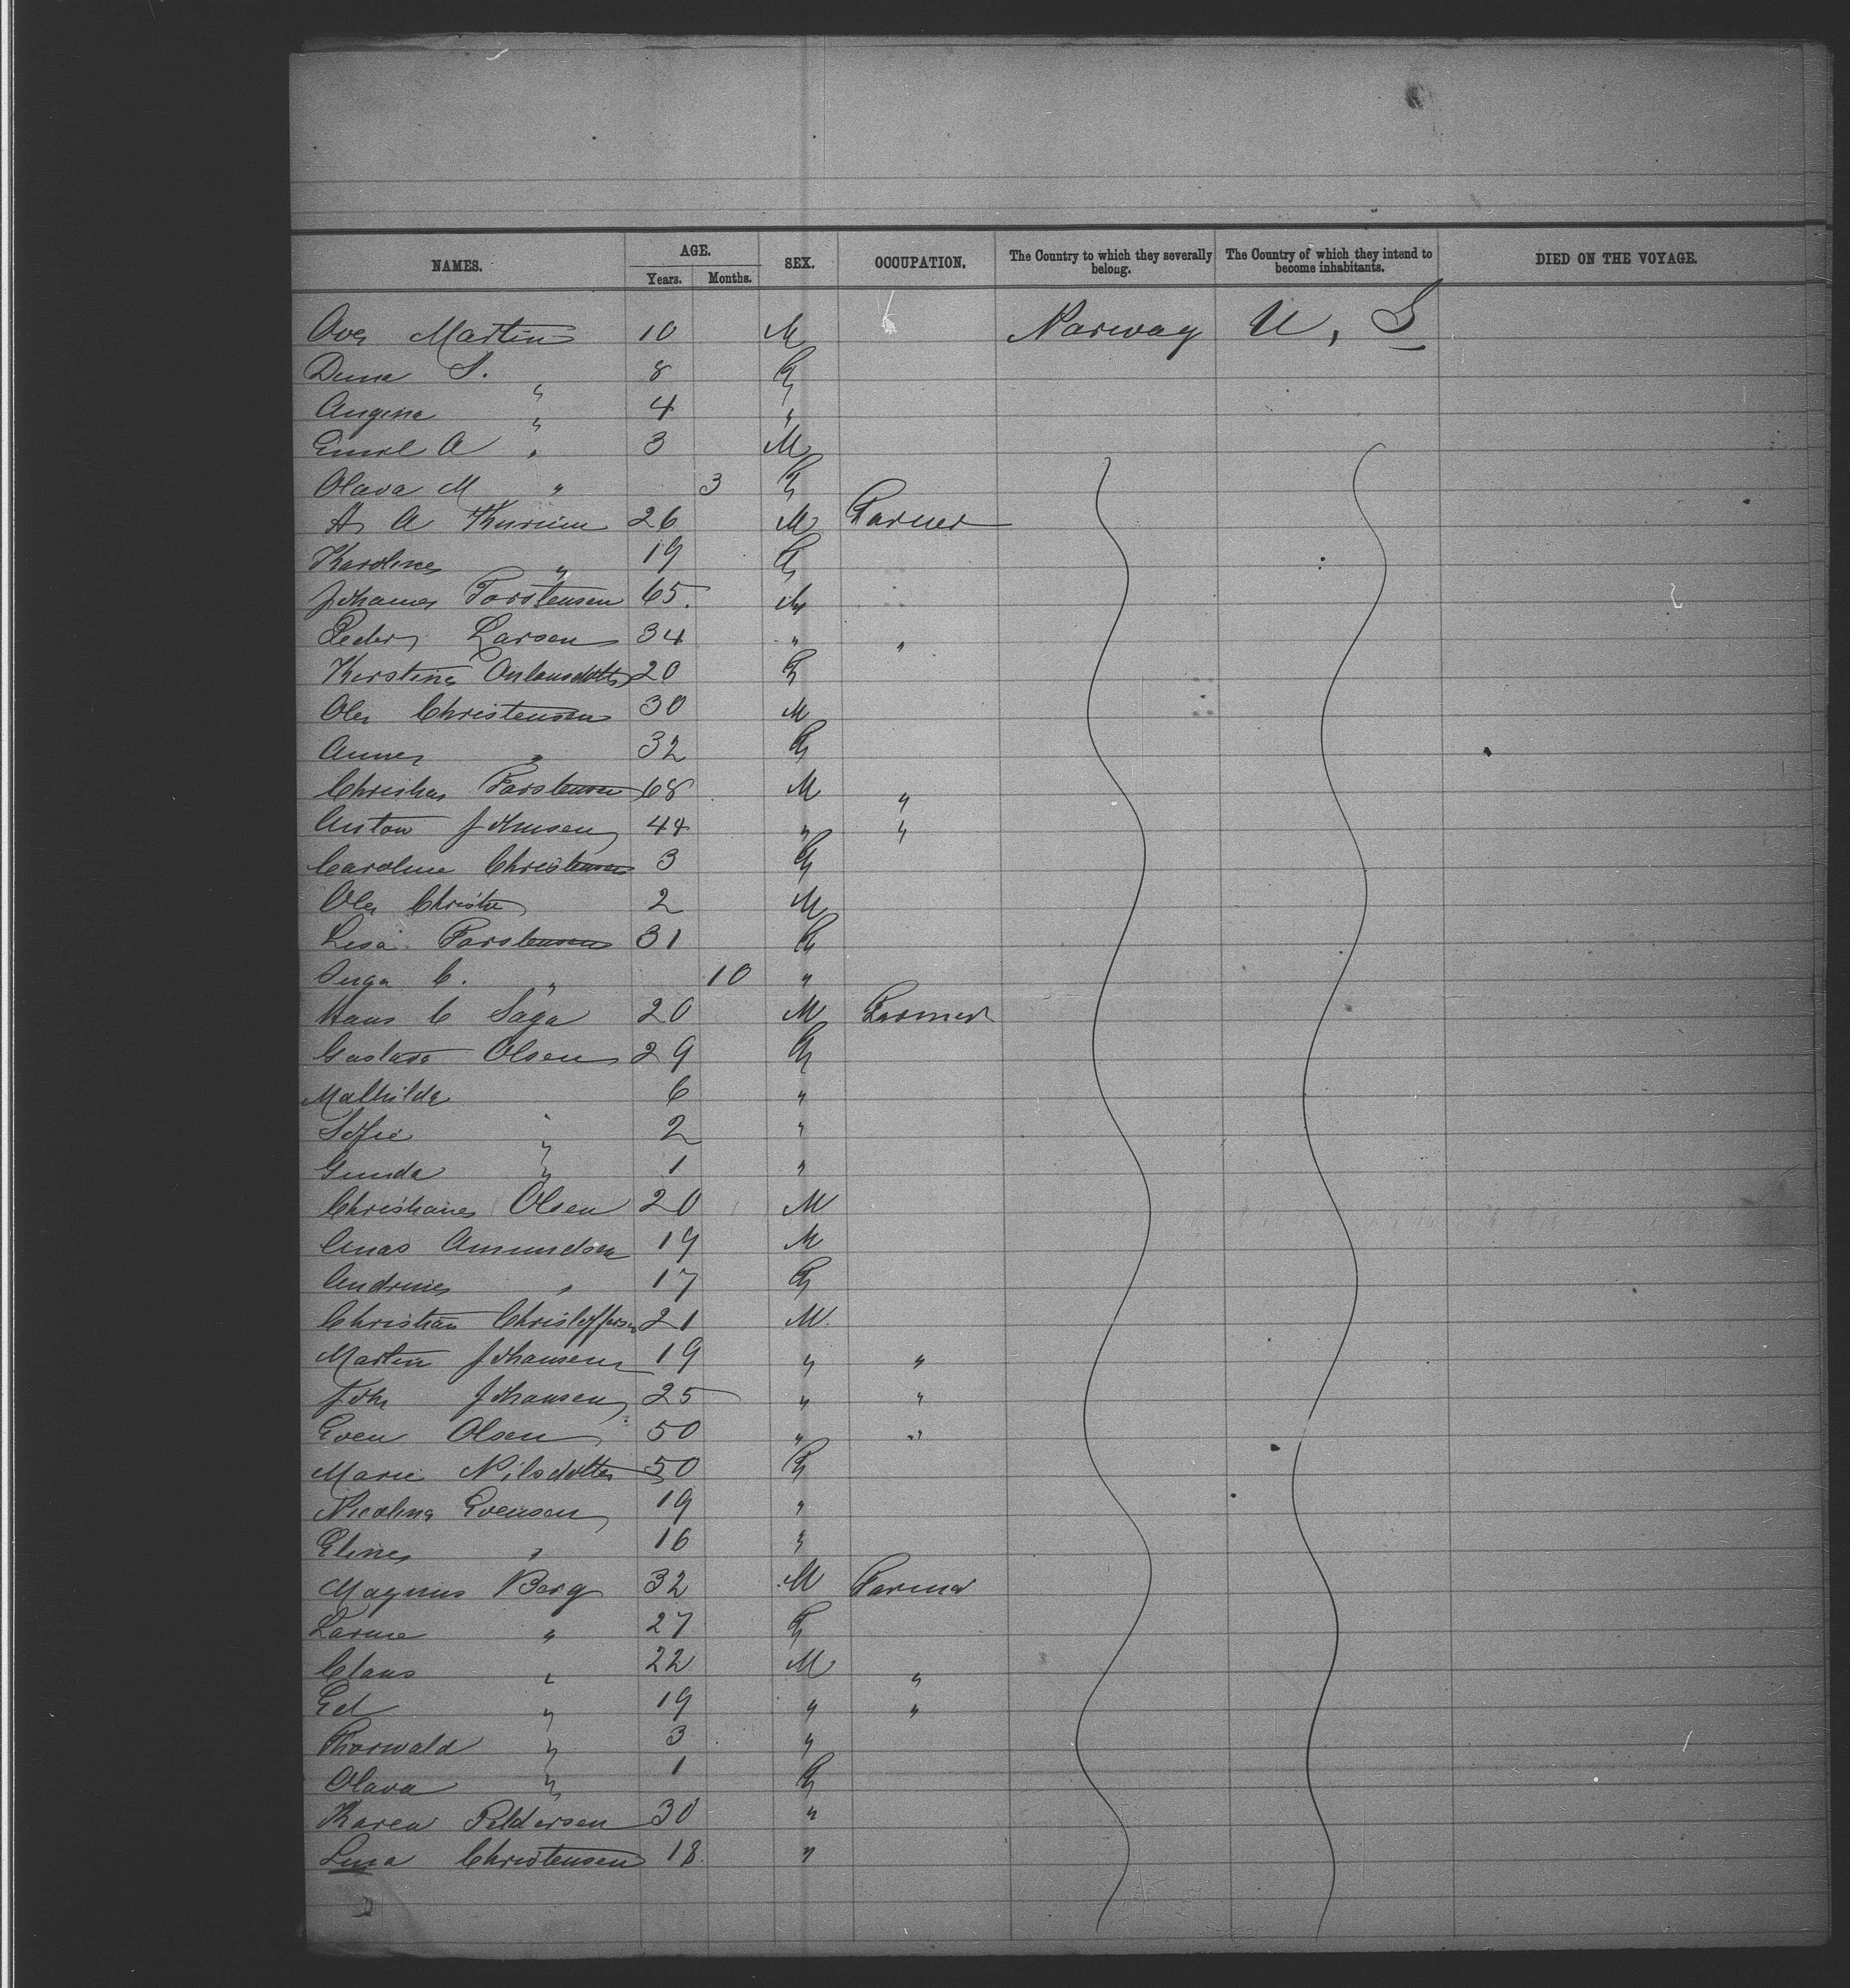 NAMES. AGE. SEX. OCCUPATION. The Country to which they severally belong. The Country of which they intend to become inhabitants. DIED ON THE VOYAGE.
Years. Months.
Ove Martin 10 M Norway U, S
S. " 8 F
Angina " 4 "
Emil A " 3 M
Olava M " 3 F
A 26 M Farmer
Karoline " 19 F
Johannes Torstensen 65. M
Peder Larsen 34 " "
Kirstine 20 F
Ole Christensen 30 M
Anne " 32 F
Christian Torstensen 68 M "
Anton Johnsen 44 " "
Caroline Christensen 3 F
Ole Christn 2 M
Lisa Torstensen 31 F
Inga C. " 10 "
Hans C Saga 20 M Farmer
Gustava Olsen 29 F
Mathilde " 6 "
Sofie " 2 "
Gunda " 1 "
Christiane Olsen 20 M
Amundsen 19 M
Andrine " 17 F
Christian Christoffersen 21 M.
Martin Johansen 19 " "
Joh Johansen 25 " "
Even Olsen 50 " "
Marie Nilsdotter 50 F
Nicolina Evensen 19 "
Eline " 16 "
Magnus Berg 32 M Farmer
" 27 F
Claus " 22 M "
Ed " 19 " "
Thorwald " 3 "
Olava " 1 F
Karen Peldersen 30 "
Lina Christensen 18 "